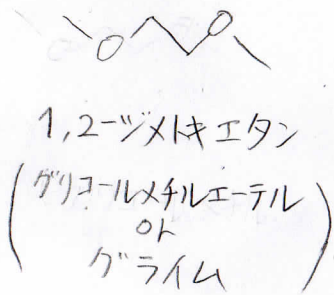 O O
1,2-ジメトキエタン
(グリコールメチルエーテル
or
グライム)